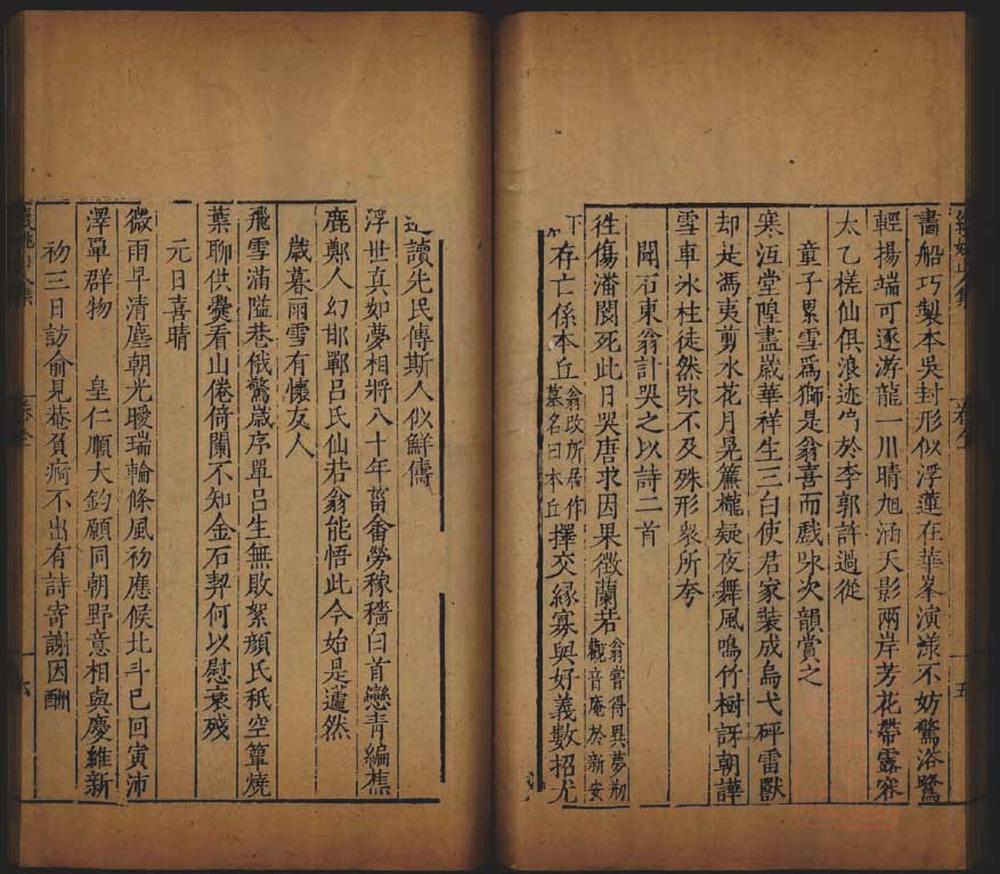 畵船巧製本吳封形似浮蓮在華峯演漾不妨驚浴鷺
輕揚端可逐游龍一川晴旭涵天影兩岸芳花帶露容
太乙槎仙俱浪迹於李郭許過從
童子累雪爲獅是翁喜而戲次韻賞之
寒沍堂隍盡歲華祥生三白使君家裝成烏弋砰雷獸
却是馮夷剪水花月晃簾櫳疑夜舞風鳴竹樹訝朝譁
雪車氷柱徒然不及殊形衆所夸
聞石東翁訃哭之以詩二首
徃傷潘閬死此日哭唐求因果徵蘭若翁嘗得異夢剏觀音庵於新安
存亡係本丘翁改所居作墓名曰本丘擇交縁寡與好義數招尤
五
讀先民傳斯人似鮮儔
浮世真如夢相將八十年菑畬勞稼穡白首戀青編蕉
鹿鄭人幻邯鄲吕氏仙若翁能悟此今始是蘧然
歲暮雨雪有懷友人
飛雪滿隘巷俄驚歲序單吕生無敗絮顔氏秖空簞燒
葉聊供爨看山倦倚闌不知金石契何以慰衰殘
元日喜晴
微雨早清塵朝光曖瑞輪條風初應候北斗已回寅沛
澤單群物 皇仁順大鈞願同朝野意相與慶維新
初三日訪俞見菴負痾不出有詩寄謝因酬
六